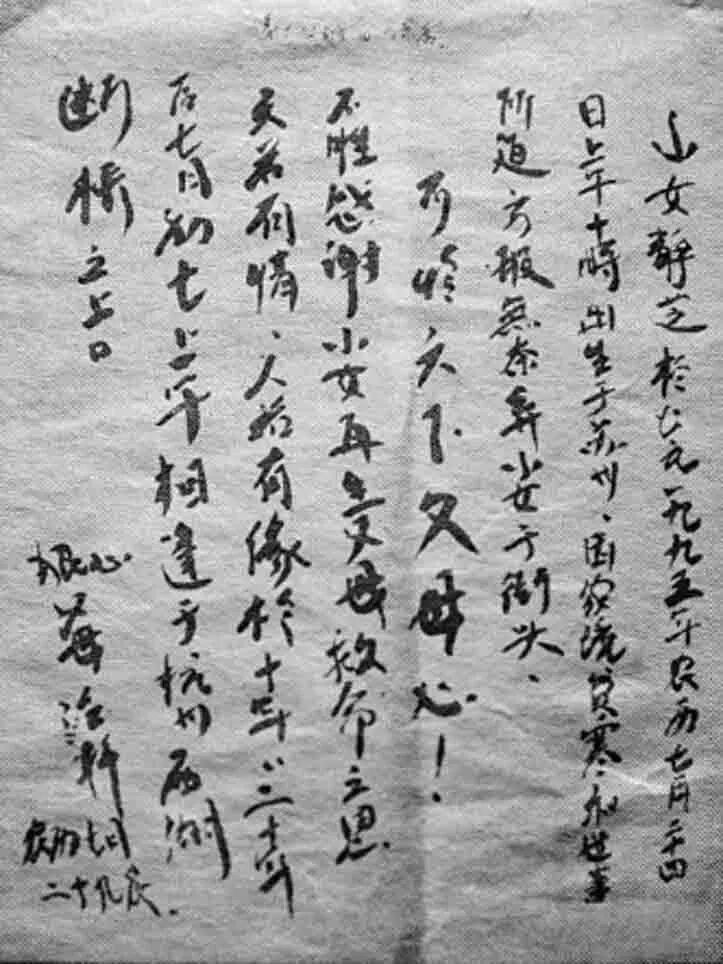 小女静芝於公元一九九五年农历七月二十四
日上午十時出生于苏州、因家境贫寒和世事
所迫 方般無奈弃小女于街头、
可怜天下父母心！
不胜感谢小女再生父母救命之恩
天若有情、人若有缘於十年以二十年
后七月初七上午相逢于杭州西湖
断桥之上
狠心爸
农历七月
二十九夜.